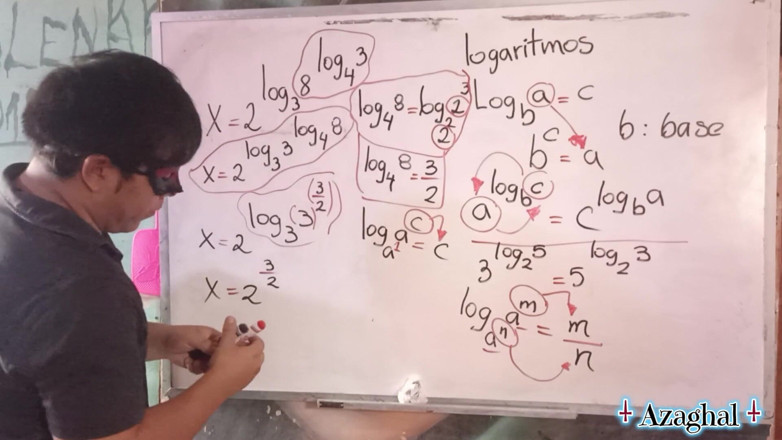 logaritmos
X = 2^{log_3 8^{log_4 3}}
X = 2^{log_3 3^{log_4 8}}
X = 2^{log_3 (3)^{(3/2)}}
X = 2^{3/2}
log_4 8 = log_{2^2} 2^3
log_4 8 = 3/2
log_{a^1} a^c = c
Log_b a = c
b^c = a
b : base
a^{log_b c} = c^{log_b a}
3^{log_2 5} = 5^{log_2 3}
log_{a^n} a^m = m/n
Azaghal